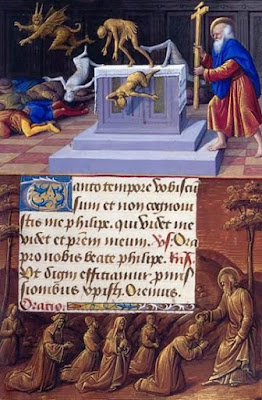 Tanto tempore vobiscū
sum et non cognoui
stis me philipe. qui videt me
videt et prēm meum. Vs. Ora
pro nobis beate philipe.
Vt digni efficiamur pmis
sionibus xp̄isti. Oremus.
Oratio